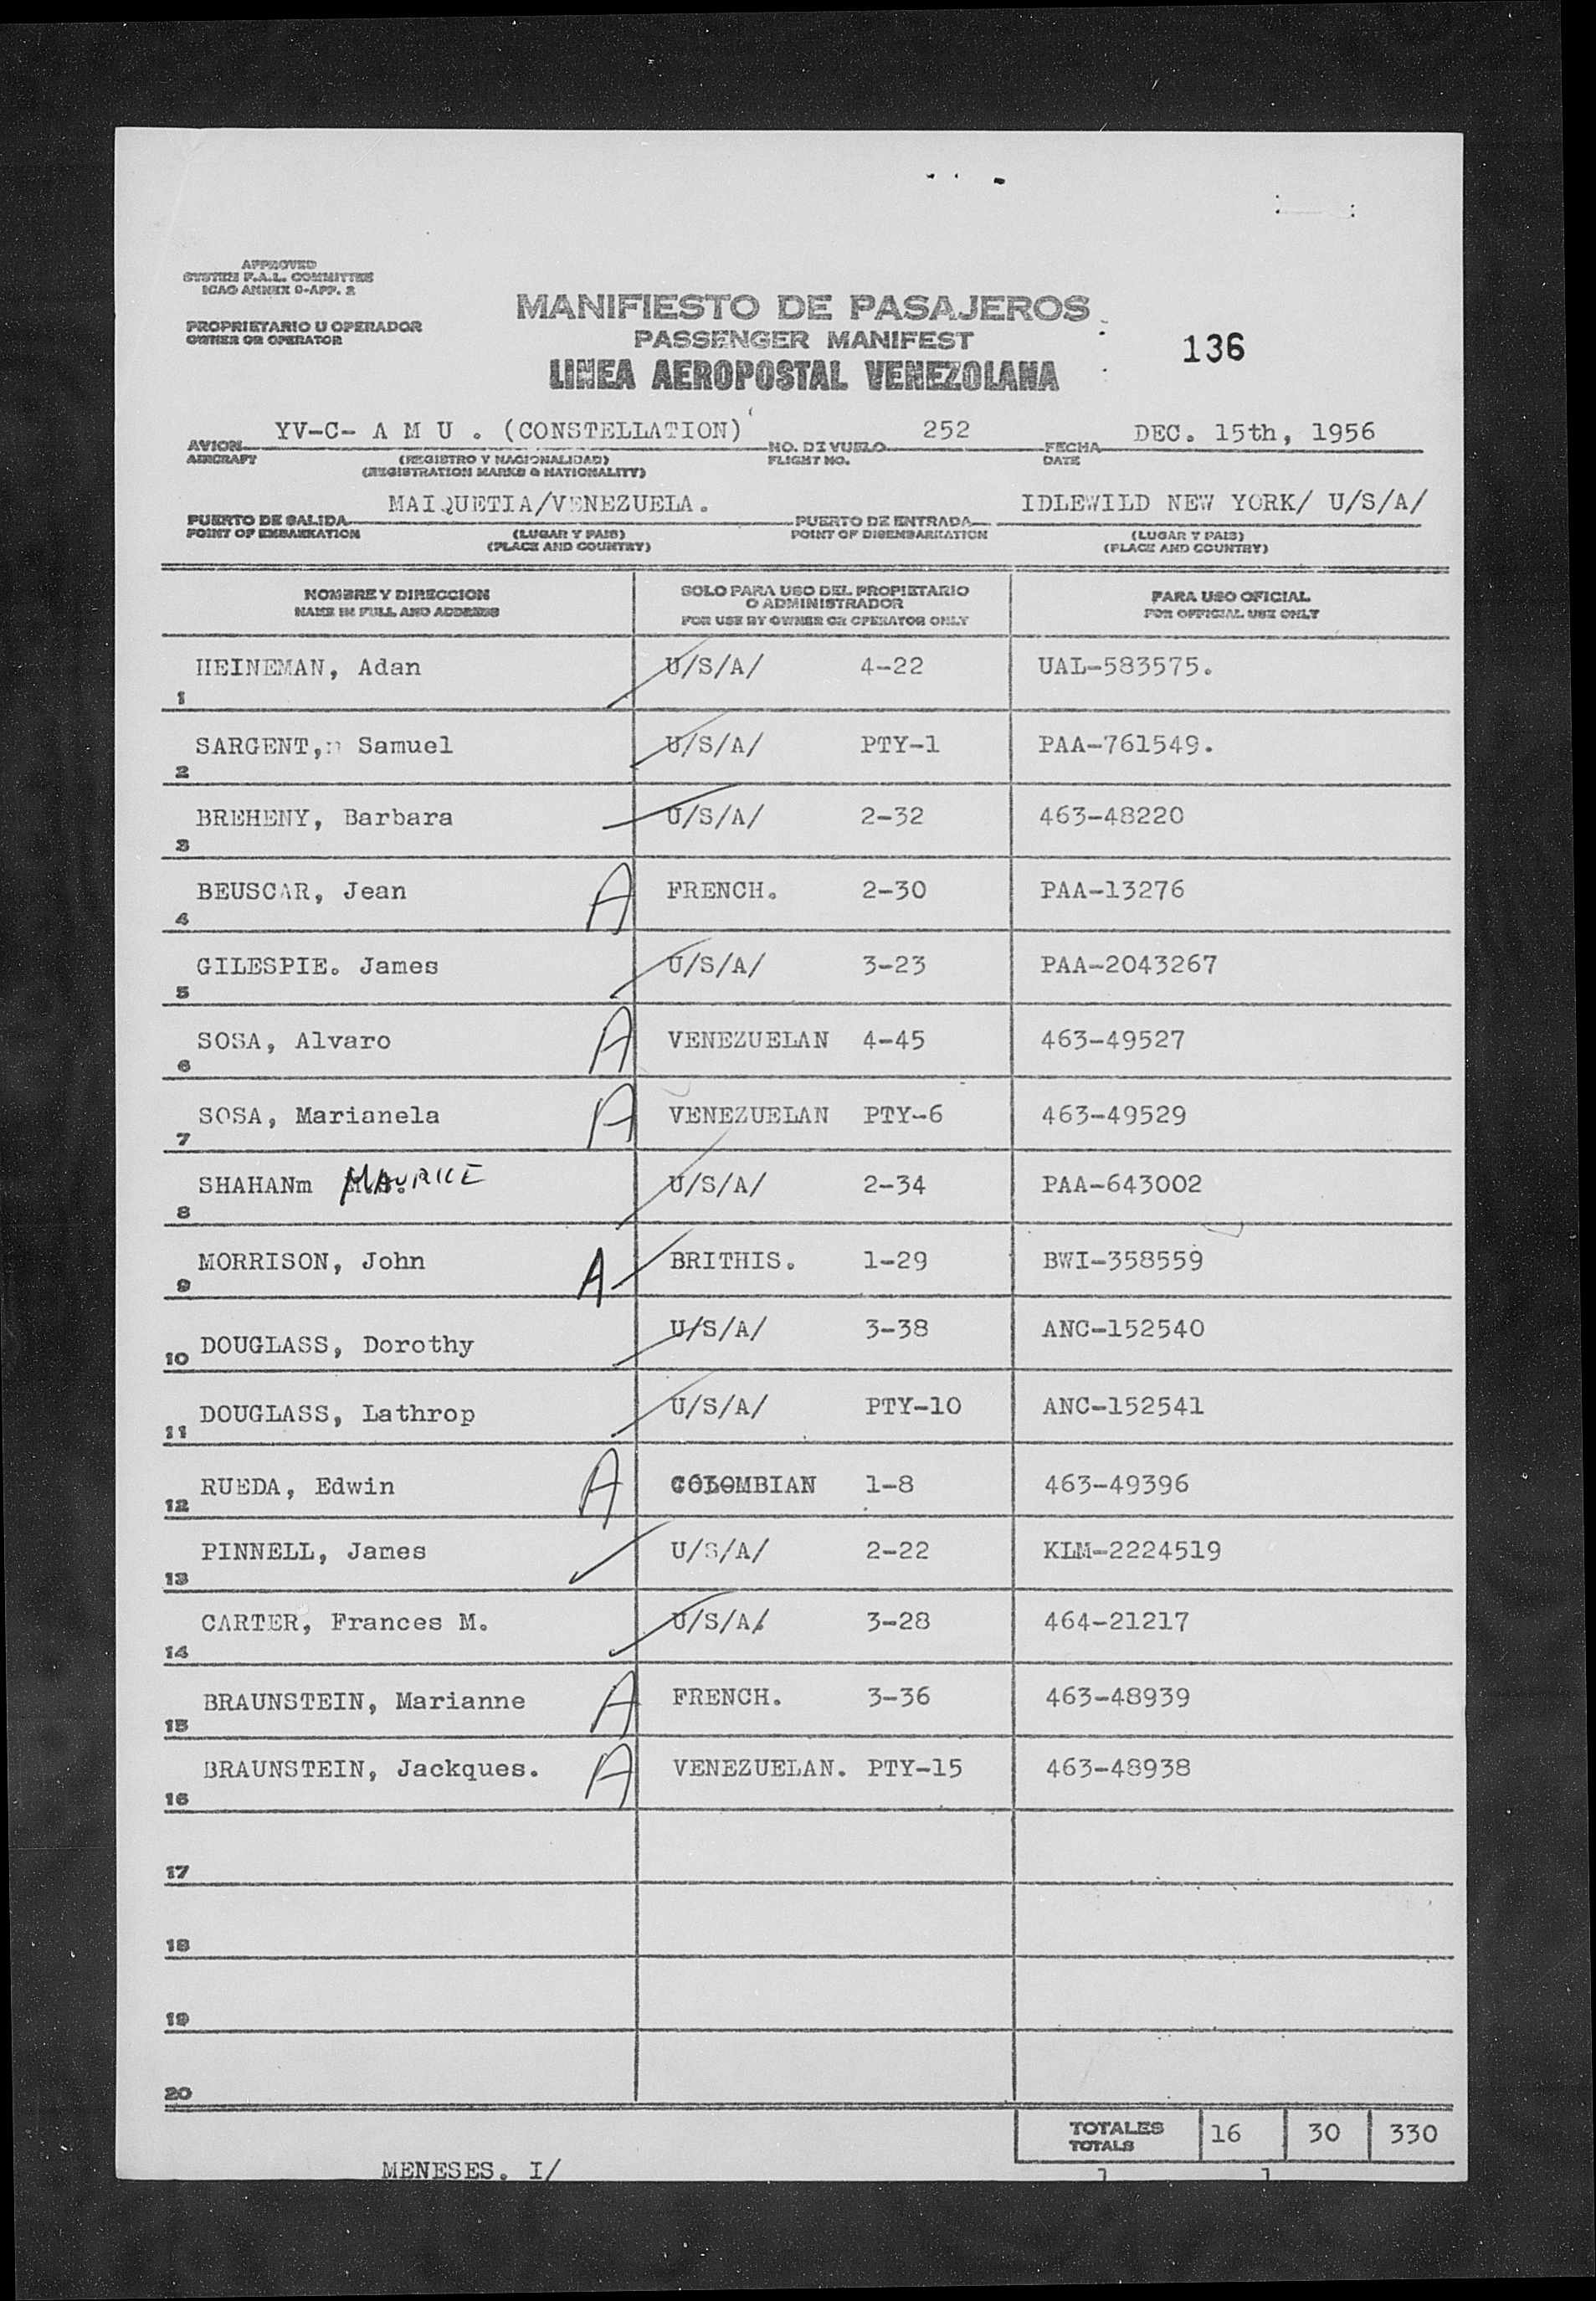 APPROVED
SYSTEM F.A.L. COMMITTEE
ICAO ANNEX 9-APP. 2
MANIFIESTO DE PASAJEROS
PROPRIETARIO U OPERADOR
OWNER OR OPERATOR
PASSENGER MANIFEST
136
LINEA AEROPOSTAL VENEZOLANA
AVION YV-C- A M U . (CONSTELLATION) NO. DE VUELO 252 FECHA DEC. 15th, 1956
AIRCRAFT (REGISTRO Y NACIONALIDAD) FLIGHT NO. DATE
(REGISTRATION MARKS & NATIONALITY)
PUERTO DE SALIDA MAIQUETIA/VENEZUELA. PUERTO DE ENTRADA IDLEWILD NEW YORK/ U/S/A/
POINT OF EMBARKATION (LUGAR Y PAIS) POINT OF DISEMBARKATION (LUGAR Y PAIS)
(PLACE AND COUNTRY) (PLACE AND COUNTRY)
NOMBRE Y DIRECCION SOLO PARA USO DEL PROPIETARIO PARA USO OFICIAL
NAME IN FULL AND ADDRESS O ADMINISTRADOR FOR OFFICIAL USE ONLY
FOR USE BY OWNER OR OPERATOR ONLY
1 HEINEMAN, Adan U/S/A/ 4-22 UAL-583575.
2 SARGENT, Samuel U/S/A/ PTY-1 PAA-761549.
3 BREHENY, Barbara U/S/A/ 2-32 463-48220
4 BEUSCAR, Jean A FRENCH. 2-30 PAA-13276
5 GILESPIE. James U/S/A/ 3-23 PAA-2043267
6 SOSA, Alvaro A VENEZUELAN 4-45 463-49527
7 SOSA, Marianela A VENEZUELAN PTY-6 463-49529
8 SHAHANm MAURICE U/S/A/ 2-34 PAA-643002
9 MORRISON, John A BRITHIS. 1-29 BWI-358559
10 DOUGLASS, Dorothy U/S/A/ 3-38 ANC-152540
11 DOUGLASS, Lathrop U/S/A/ PTY-10 ANC-152541
12 RUEDA, Edwin A COLOMBIAN 1-8 463-49396
13 PINNELL, James U/S/A/ 2-22 KLM-2224519
14 CARTER, Frances M. U/S/A/ 3-28 464-21217
15 BRAUNSTEIN, Marianne A FRENCH. 3-36 463-48939
16 BRAUNSTEIN, Jackques. A VENEZUELAN. PTY-15 463-48938
17
18
19
20
TOTALES 16 30 330
TOTALS
MENESES. I/